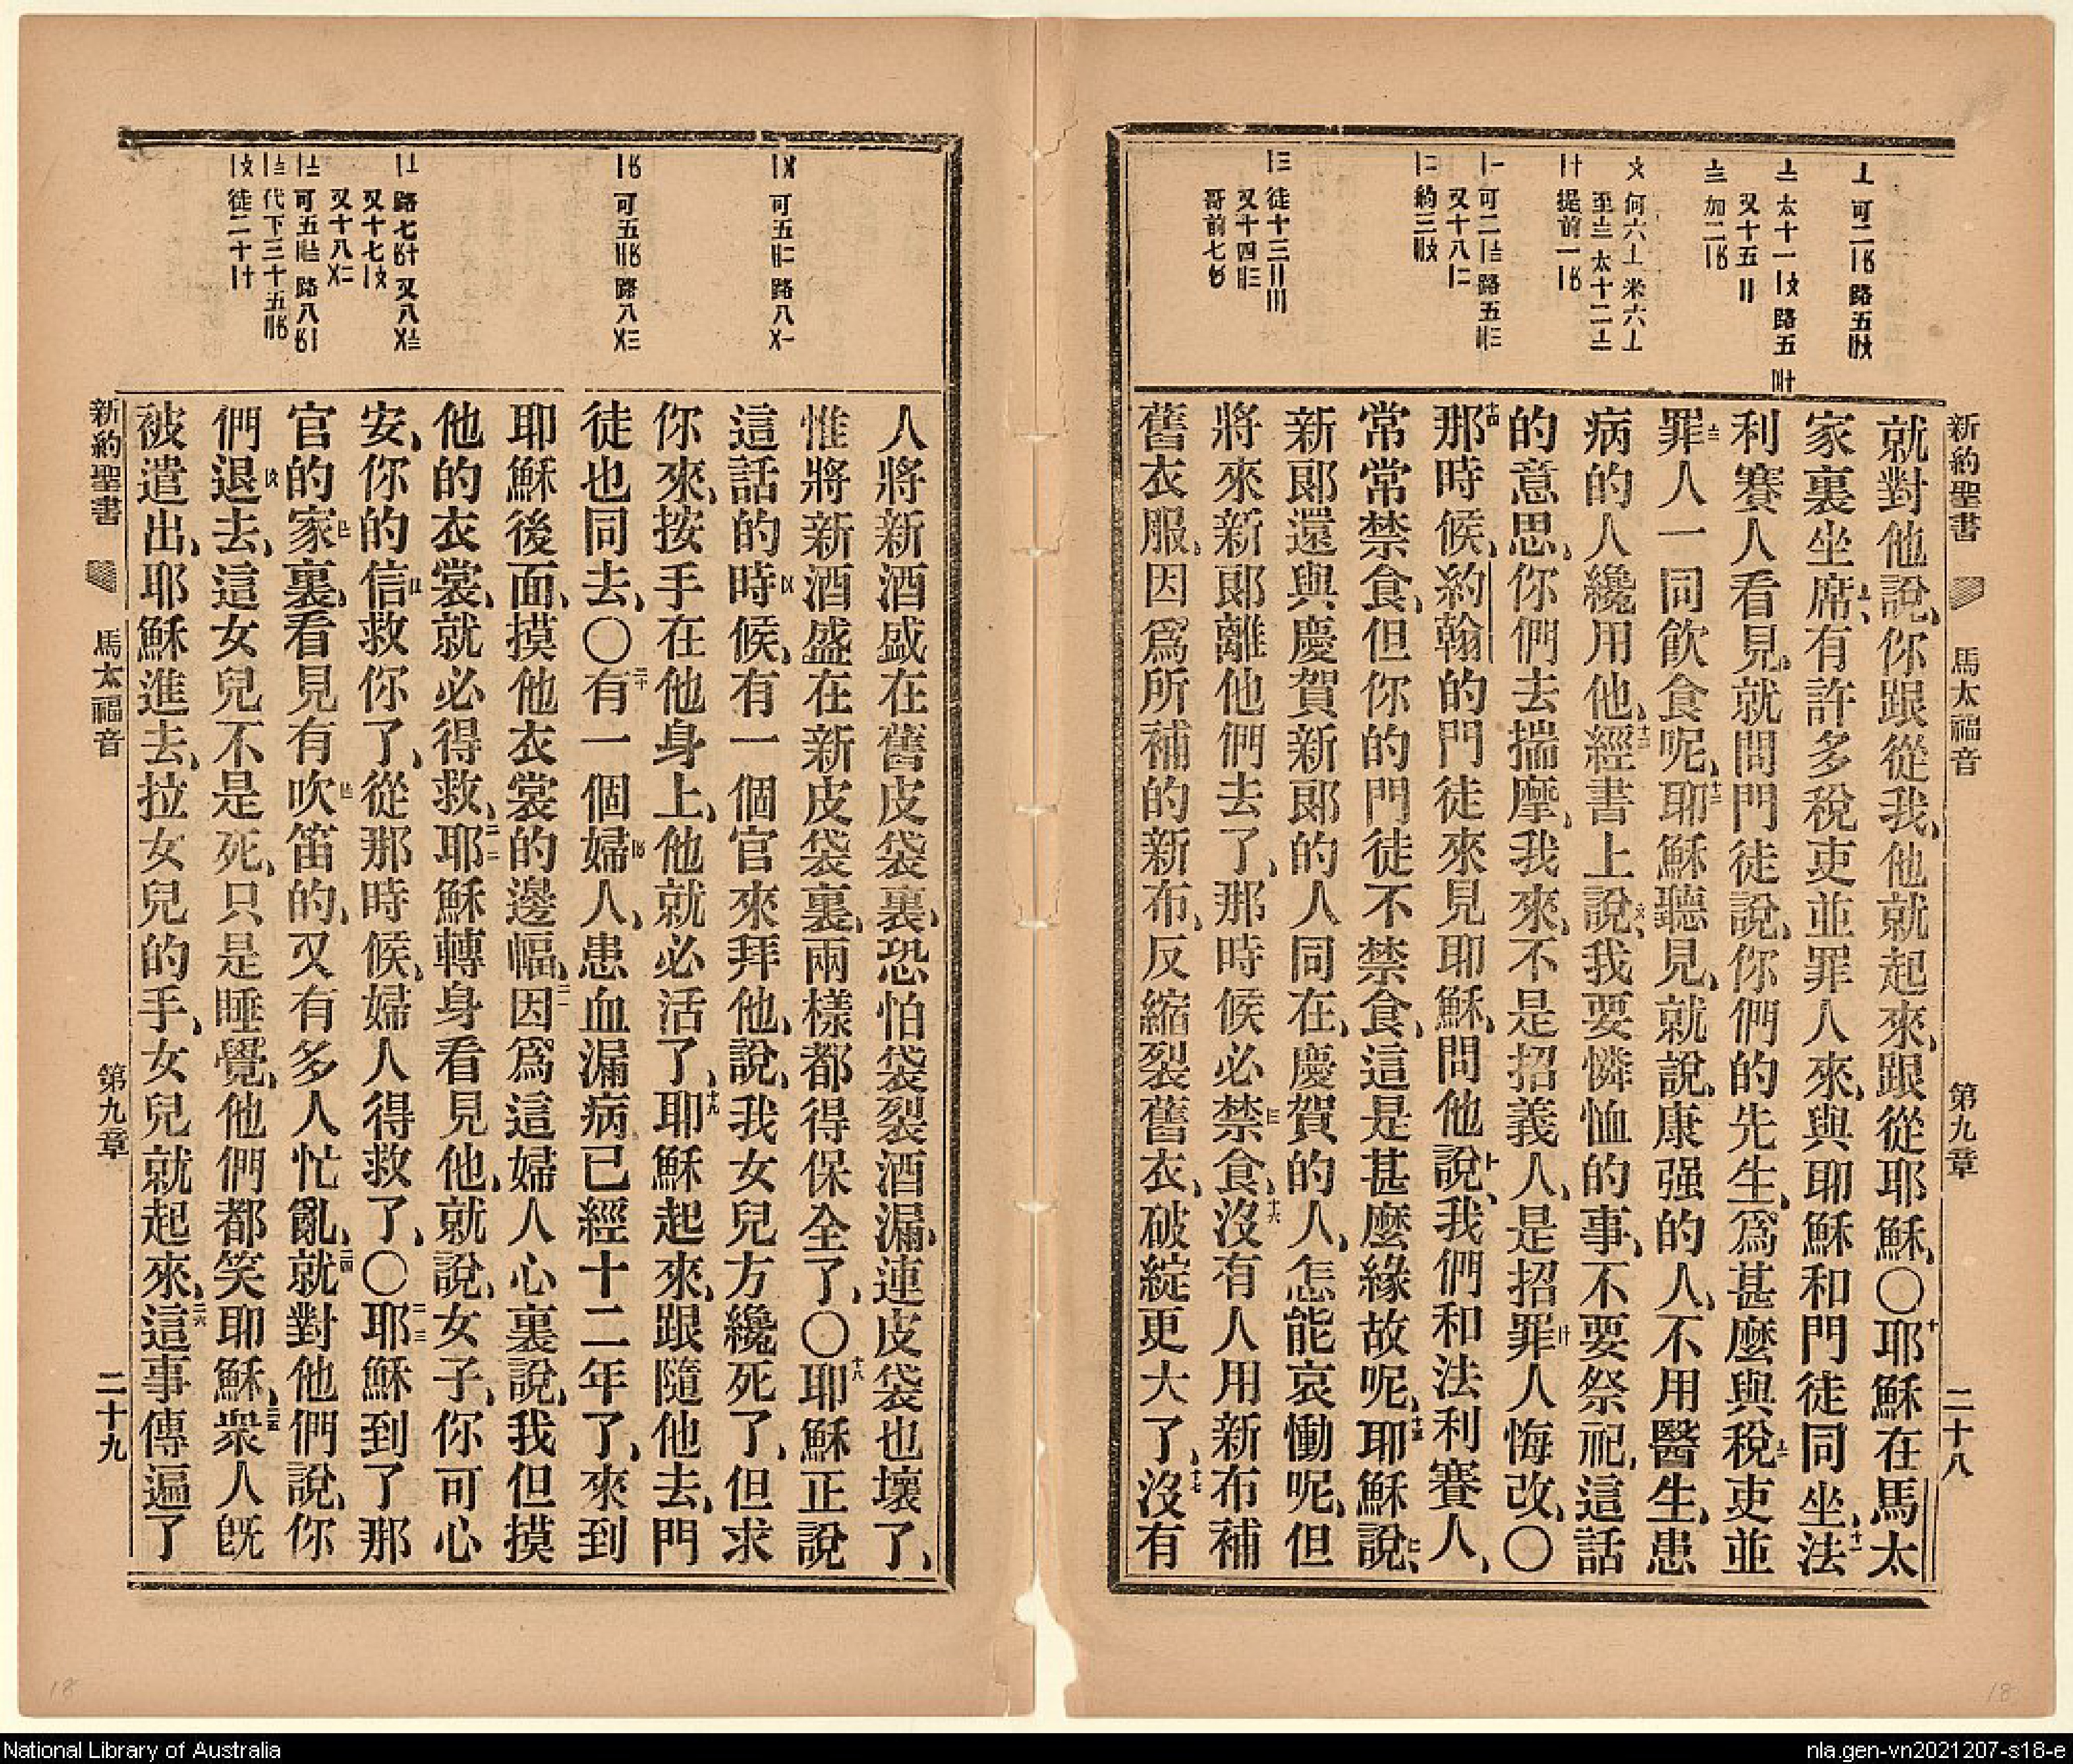 新約聖書 馬太福音 第九章 二十八
就對他說、你跟從我、他就起來、跟從耶穌、〇十耶穌在馬太
家裏坐席、有許多稅吏並罪人來、與耶穌和門徒同坐、十一法
利賽人看見、就問門徒說、你們的先生、爲甚麼與稅吏並
罪人一同飲食呢、十二耶穌聽見、就說、康强的人、不用醫生、患
病的人纔用他、十三經書上說、我要憐恤的事、不要祭祀、這話
的意思、你們去揣摩、我來、不是招義人、是招罪人悔改、〇
十四那時候、約翰的門徒來見耶穌、問他說、我們和法利賽人、
常常禁食、但你的門徒不禁食、這是甚麼緣故呢、十五耶穌說、
新郞還與慶賀新郞的人同在、慶賀的人、怎能哀慟呢、但
將來新郞離他們去了、那時候必禁食、十六沒有人用新布補
舊衣服、因爲所補的新布、反縮裂舊衣、破綻更大了、十七沒有
人將新酒盛在舊皮袋裏、恐怕袋裂酒漏、連皮袋也壞了、
惟將新酒盛在新皮袋裏、兩樣都得保全了、〇十八耶穌正說
這話的時候、有一個官來拜他、說、我女兒方纔死了、但求
你來、按手在他身上、他就必活了、十九耶穌起來、跟隨他去、門
徒也同去、〇二十有一個婦人、患血漏病已經十二年了、來到
耶穌後面、摸他衣裳的邊幅、二一因爲這婦人心裏說、我但摸
他的衣裳、就必得救、二二耶穌轉身看見他、就說、女子、你可心
安、你的信救你了、從那時候、婦人得救了、〇二三耶穌到了那
官的家裏、看見有吹笛的、又有多人忙亂、二四就對他們說、你
們退去、這女兒不是死、只是睡覺、他們都笑耶穌、二五衆人旣
被遣出、耶穌進去、拉女兒的手、女兒就起來、二六這事傳遍了
新約聖書 馬太福音 第九章 二十九
18
18
National Library of Australia
nla.gen-vn2021207-s18-e